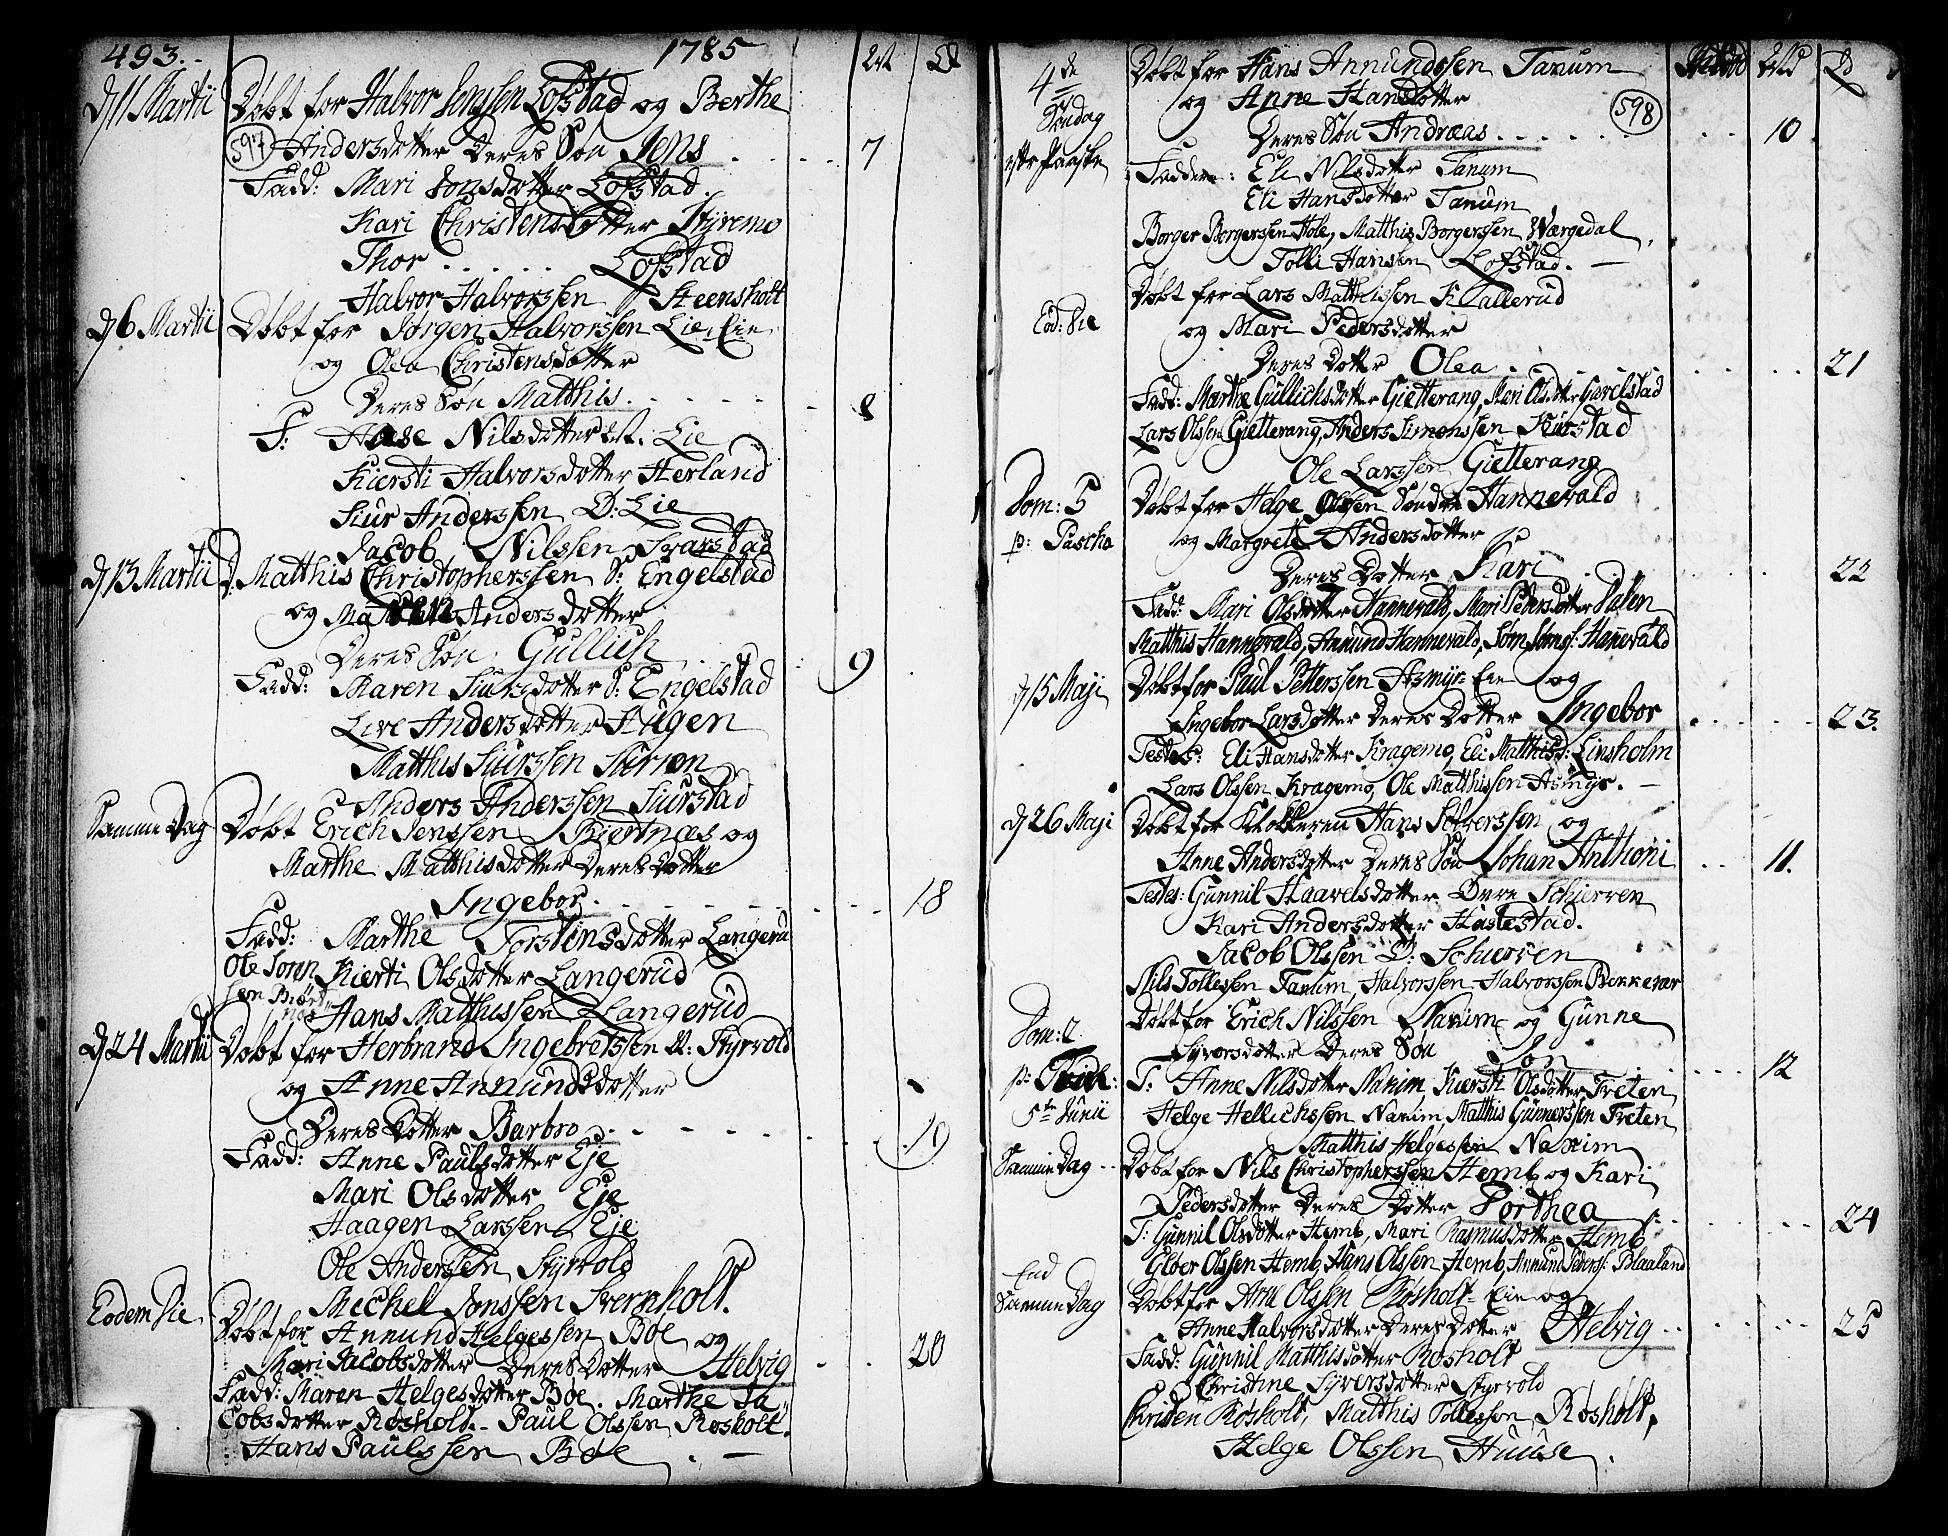 493.
1785
d 11 Martii
Døbt for Halvor Jenssen Lofstad og Berthe
597
Andersdotter Deres Søn Jens
7
Fadd: Mari Jonsdotter Lofstad.
Kari Christensdotter Styremo
Thor . . . . . Lofstad
Halvor Halvorssen Steensholt
d 6 Martii
Døbt for Jørgen Halvorssen Lie Eie
og Olea Christensdotter
Deres Søn Matthis
8
F: Aase Nilsdotter Lie
Kiersti Halvorsdotter Herland
Siur Anderssen D: Lie
Jacob Nilssen
d 13 Martii
D: Matthis Christopherssen S: Engelstad
og Andersdotter
Deres Søn Gullich
9
Fadd: Maren Siursdotter S: Engelstad
Live Andersdotter Haugen
Matthis Siurssen
Anders Anderssen Siurstad
Samme Dag
Døbt Erich Jenssen Biertnæs og
Marthe Matthisdotter Deres Dotter
Ingebor
18
Fadd: Marthe Torstensdotter Langeru
Ole Soren
Kierti Olsdotter Langerud
sen Biørt
næs
Hans Matthissen Langerud
d 24 Martii
Døbt for Herbrand Ingebretssen N: Styrvold
og Anne Annundsdotter
Deres Dotter Barbro
19
Fadd: Anne Paulsdotter Eje
Mari Olsdotter Eje
Haagen Larssen Eje
Ole Anderssen Styrvold
Michel Jonssen Svernholt.
Eodem Die
Døbt for Annund Helgessen Bøe og
Mari Jacobsdotter Deres Dotter Helvig
20
Fadd: Maren Helgesdotter Bøe. Marthe Ja
cobsdotter Røsholt. Paul Olssen Røsholt.
Hans Paulssen Bøe
4de
Søndag
efter Paaske
Døbt for Hans Annundssen Tanum
og Anne Hansdotter
598
Deres Søn Andræas
10
Faddere: Eli Nilsdotter Tanum
Eli Hansdotter Tanum
Borger Borgerssen Hole, Matthis Borgerssen Værgedal,
Tolli Hansen Lofstad.
Eod: Die
Døbt for Lars Matthissen Kallerud
og Mari Pedersdotter
Deres Dotter Olea
21
Fadd: Marthe Gullichsdotter Gietterang, Mari Olsdotter Gavelstad
Lars Olssen Gietterang, Anders Simonssen Siurstad
Ole Larssen Gietterang
Dom: 5
p: Pascha
Døbt for Helge Olssen Søndre Hannevald
og Margrete Andersdotter
Deres Dotter Kari
22
Fadd: Mari Olsdotter Hannevald, Mari Pedersdotter Palen
Matthis Hannevald, Annund Hannevald, Hannevald
d 15 Maji
Døbt for Paul Petterssen Asmyr Eie og
Ingebor Larsdotter Deres Dotter Ingebor
23.
Testes: Eli Hansdotter Kragemo, Eli Matthisd: Linsholm
Lars Olssen Kragemo, Ole Matthissen Asmyr.
d 26 Maji
Døbt for Klokkeren Hans Solverssen og
Anne Andersdotter Deres Søn Johan Anthoni
11.
Testes: Gunnil Haavelsdotter Øvre Schierven
Kari Andersdotter Hastestad.
Jacob Olssen D: Schierven
Nils Tollessen Tanum, Halvorssen Halvorssen Bekkevar
Dom: 2
p: Trin:
5te Junii
Døbt for Erich Nilssen Narum og Gunne
Syversdotter Deres Søn Jon
12
T: Anne Nilsdotter Narum, Kiersti Olsdotter Freten
Helge Hellichssen Narum, Matthis Gunnerssen Freten
Matthis Helgessen Narum
Samme Dag
Døbt for Nils Christopherssen Hemb og Kari
Pedersdotter Deres Dotter Dorthea
24
T: Gunnil Olsdotter Hemb, Mari Rasmusdotter Hemb
Gloer Olssen Hemb, Hans Olssen Hemb, Annund Pederss: Blaaland
End
Samme Dag
Døbt for Arne Olssen Røsholt Eie og
Anne Halvorsdotter Deres Dotter Helvig
25
Fadd: Gunnil Matthisdotter Røsholt
Christine Syversdotter Styrvold
Christen Røsholt, Matthis Tollessøn Røsholt,
Helge Olssen Huuse.